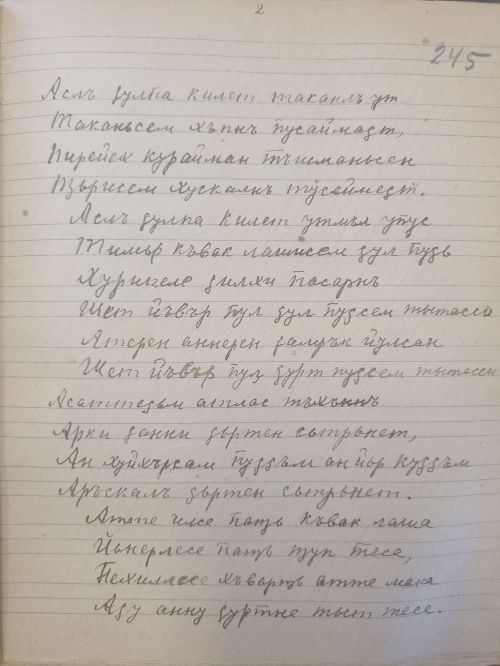 2
245
Аслъ ҙулпа килет таканлъ ут
Таканьсем хъпнъ пусаймаҙт,
Пирейех курайман тъшманьсен
Пҙърисем хускалнъ тӳсеймеҙт.
Аслъ ҙулпа килет утмъл упус
Тимър къвак лашисем ҙул пуҙь
Хуринҽеле ҙилхи пасарнъ
Шет йъвър пул ҙул пуҙсем тытасси
Аттерен аннерен ҙамрък йулсан
Шет йъвър пул ҙурт пуҙсем тытасси
Асаттеҙьм атлас тъхъннъ
Арки ҙанни ҙьртен сьтрьнет,
Ан хуйхърсам пуҙҙъм ан йор куҙҙъм
Аръскалъ ҙьртен сьтрьнет.
Атте илсе патъ къвак лаша
Йьнерлесе патъ ҙуп тесе,
Пехиллесе хъварҙъ атте мака
Аҙу анну ҙуртне тыт тесе.